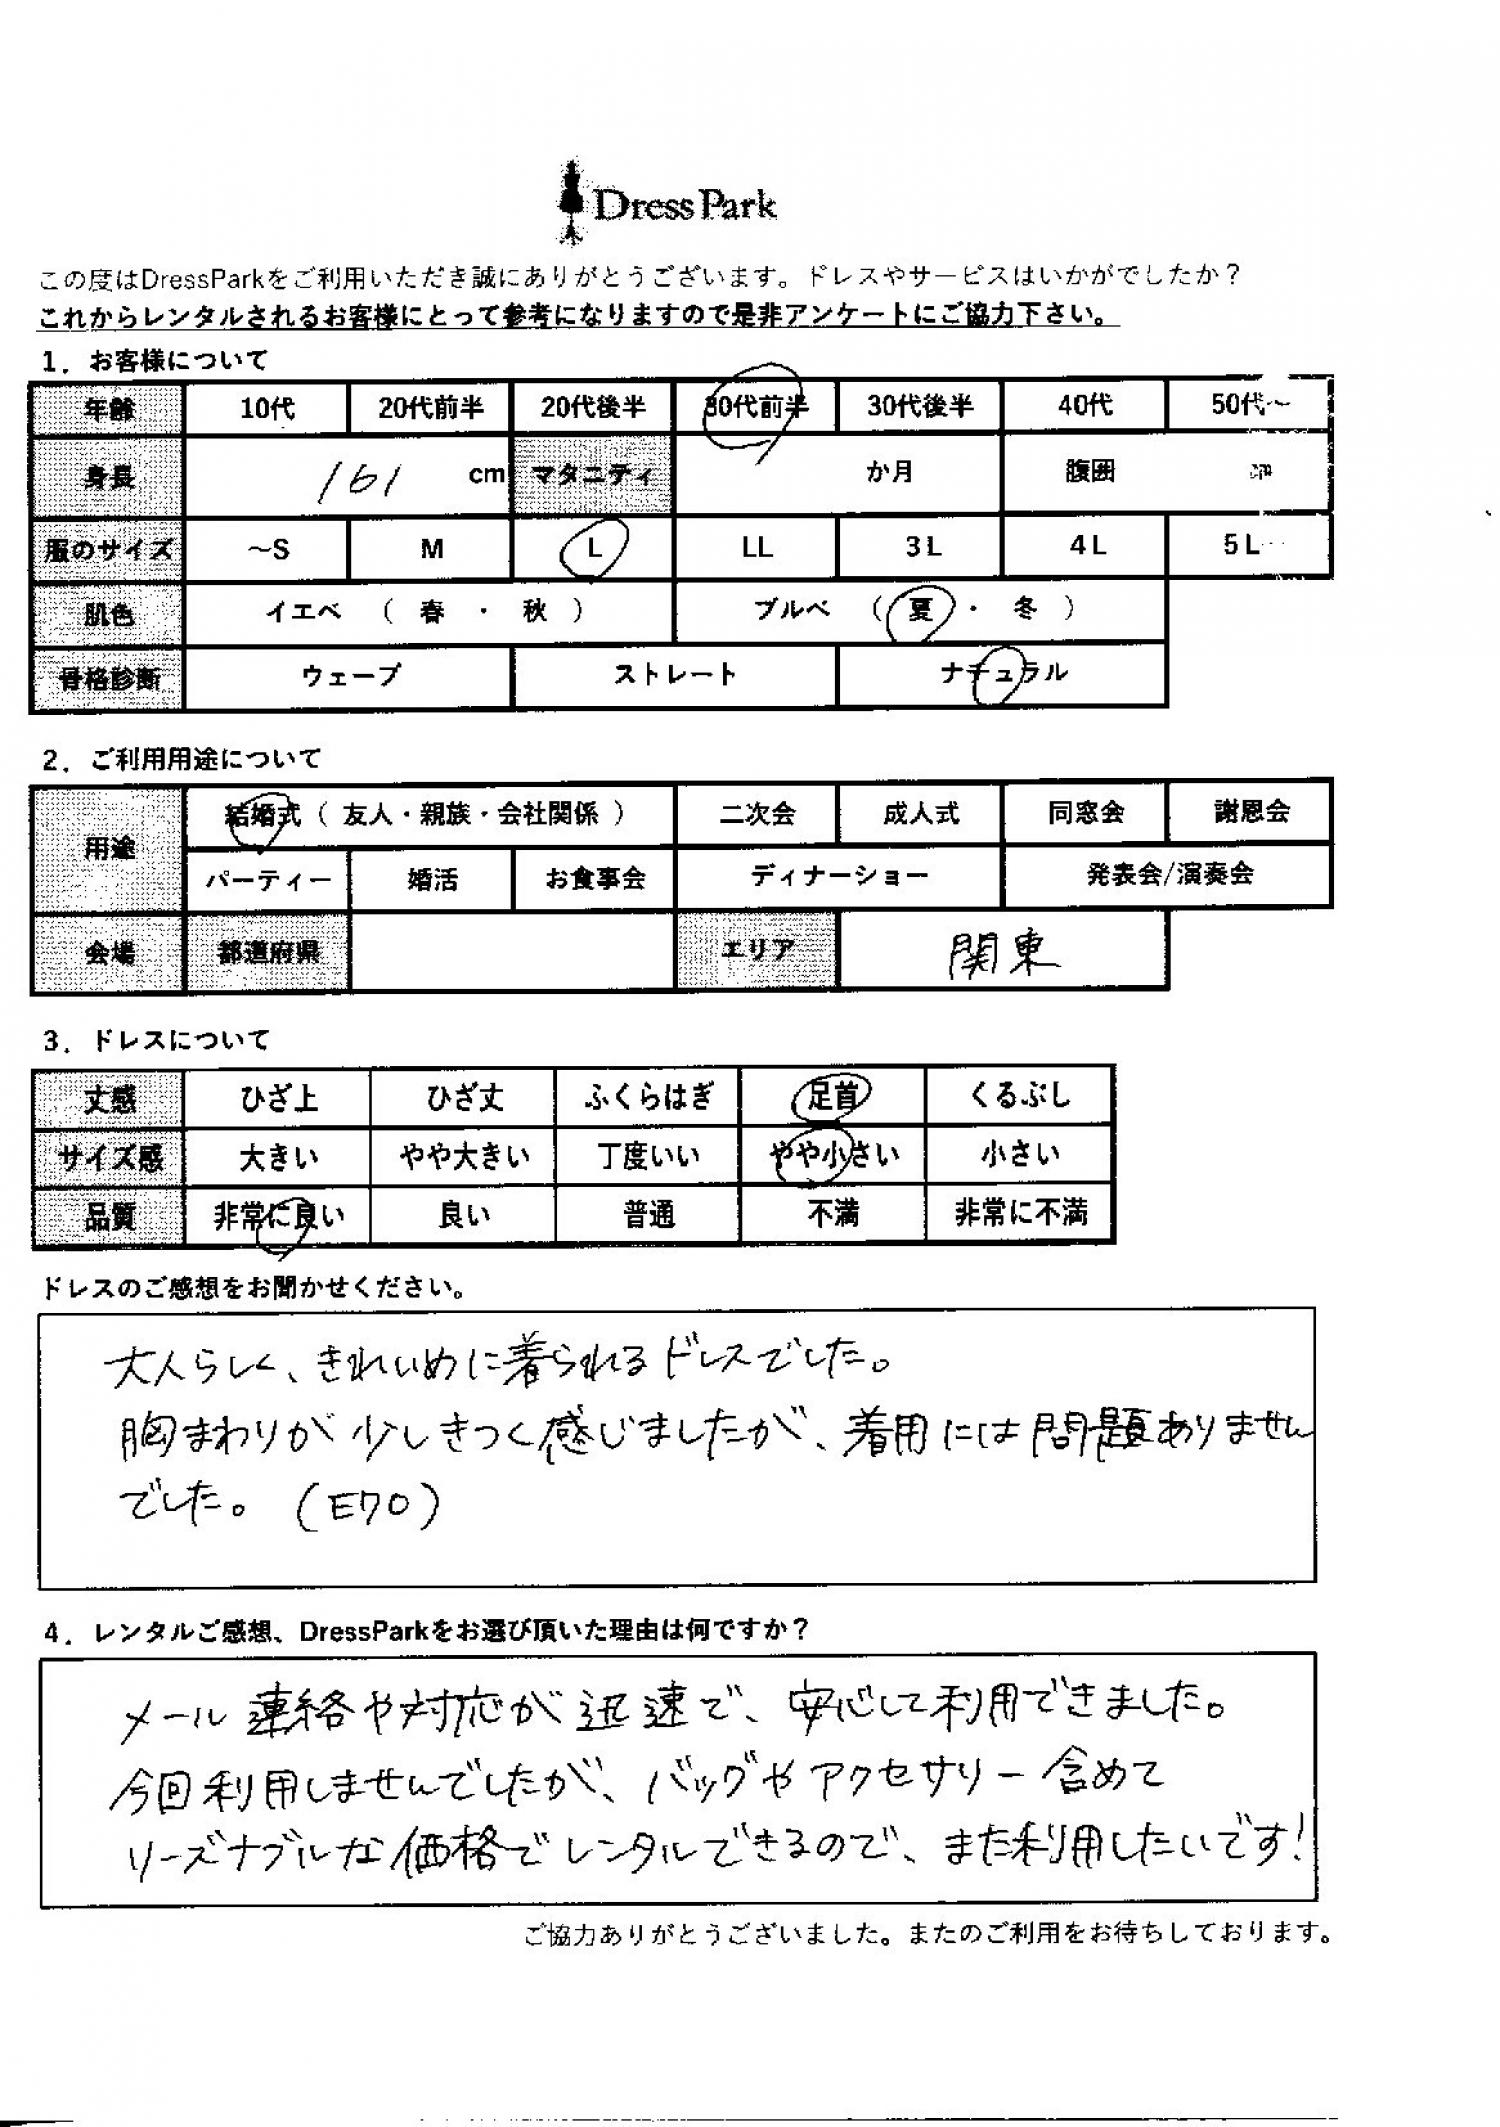 DressPark
この度はDressParkをご利用いただき誠にありがとうございます。ドレスやサービスはいかがでしたか？
これからレンタルされるお客様にとって参考になりますので是非アンケートにご協力下さい。
1．お客様について
年齢 10代 20代前半 20代後半 30代前半 30代後半 40代 50代～
身長 161 cm マタニティ か月 腹囲 cm
服のサイズ ～S M L LL 3L 4L 5L…
肌色 イエベ （ 春 ・ 秋 ） ブルベ （ 夏 ・ 冬 ）
骨格診断 ウェーブ ストレート ナチュラル
2．ご利用用途について
用途 結婚式（ 友人・親族・会社関係 ） 二次会 成人式 同窓会 謝恩会
パーティー 婚活 お食事会 ディナーショー 発表会/演奏会
会場 都道府県 エリア 関東
3．ドレスについて
丈感 ひざ上 ひざ丈 ふくらはぎ 足首 くるぶし
サイズ感 大きい やや大きい 丁度いい やや小さい 小さい
品質 非常に良い 良い 普通 不満 非常に不満
ドレスのご感想をお聞かせください。
大人らしく、きれいめに着られるドレスでした。
胸まわりが少しきつく感じましたが、着用には問題ありません
でした。（E70）
4．レンタルご感想、DressParkをお選び頂いた理由は何ですか？
メール連絡や対応が迅速で、安心して利用できました。
今回利用しませんでしたが、バッグやアクセサリー含めて
リーズナブルな価格でレンタルできるので、また利用したいです！
ご協力ありがとうございました。またのご利用をお待ちしております。